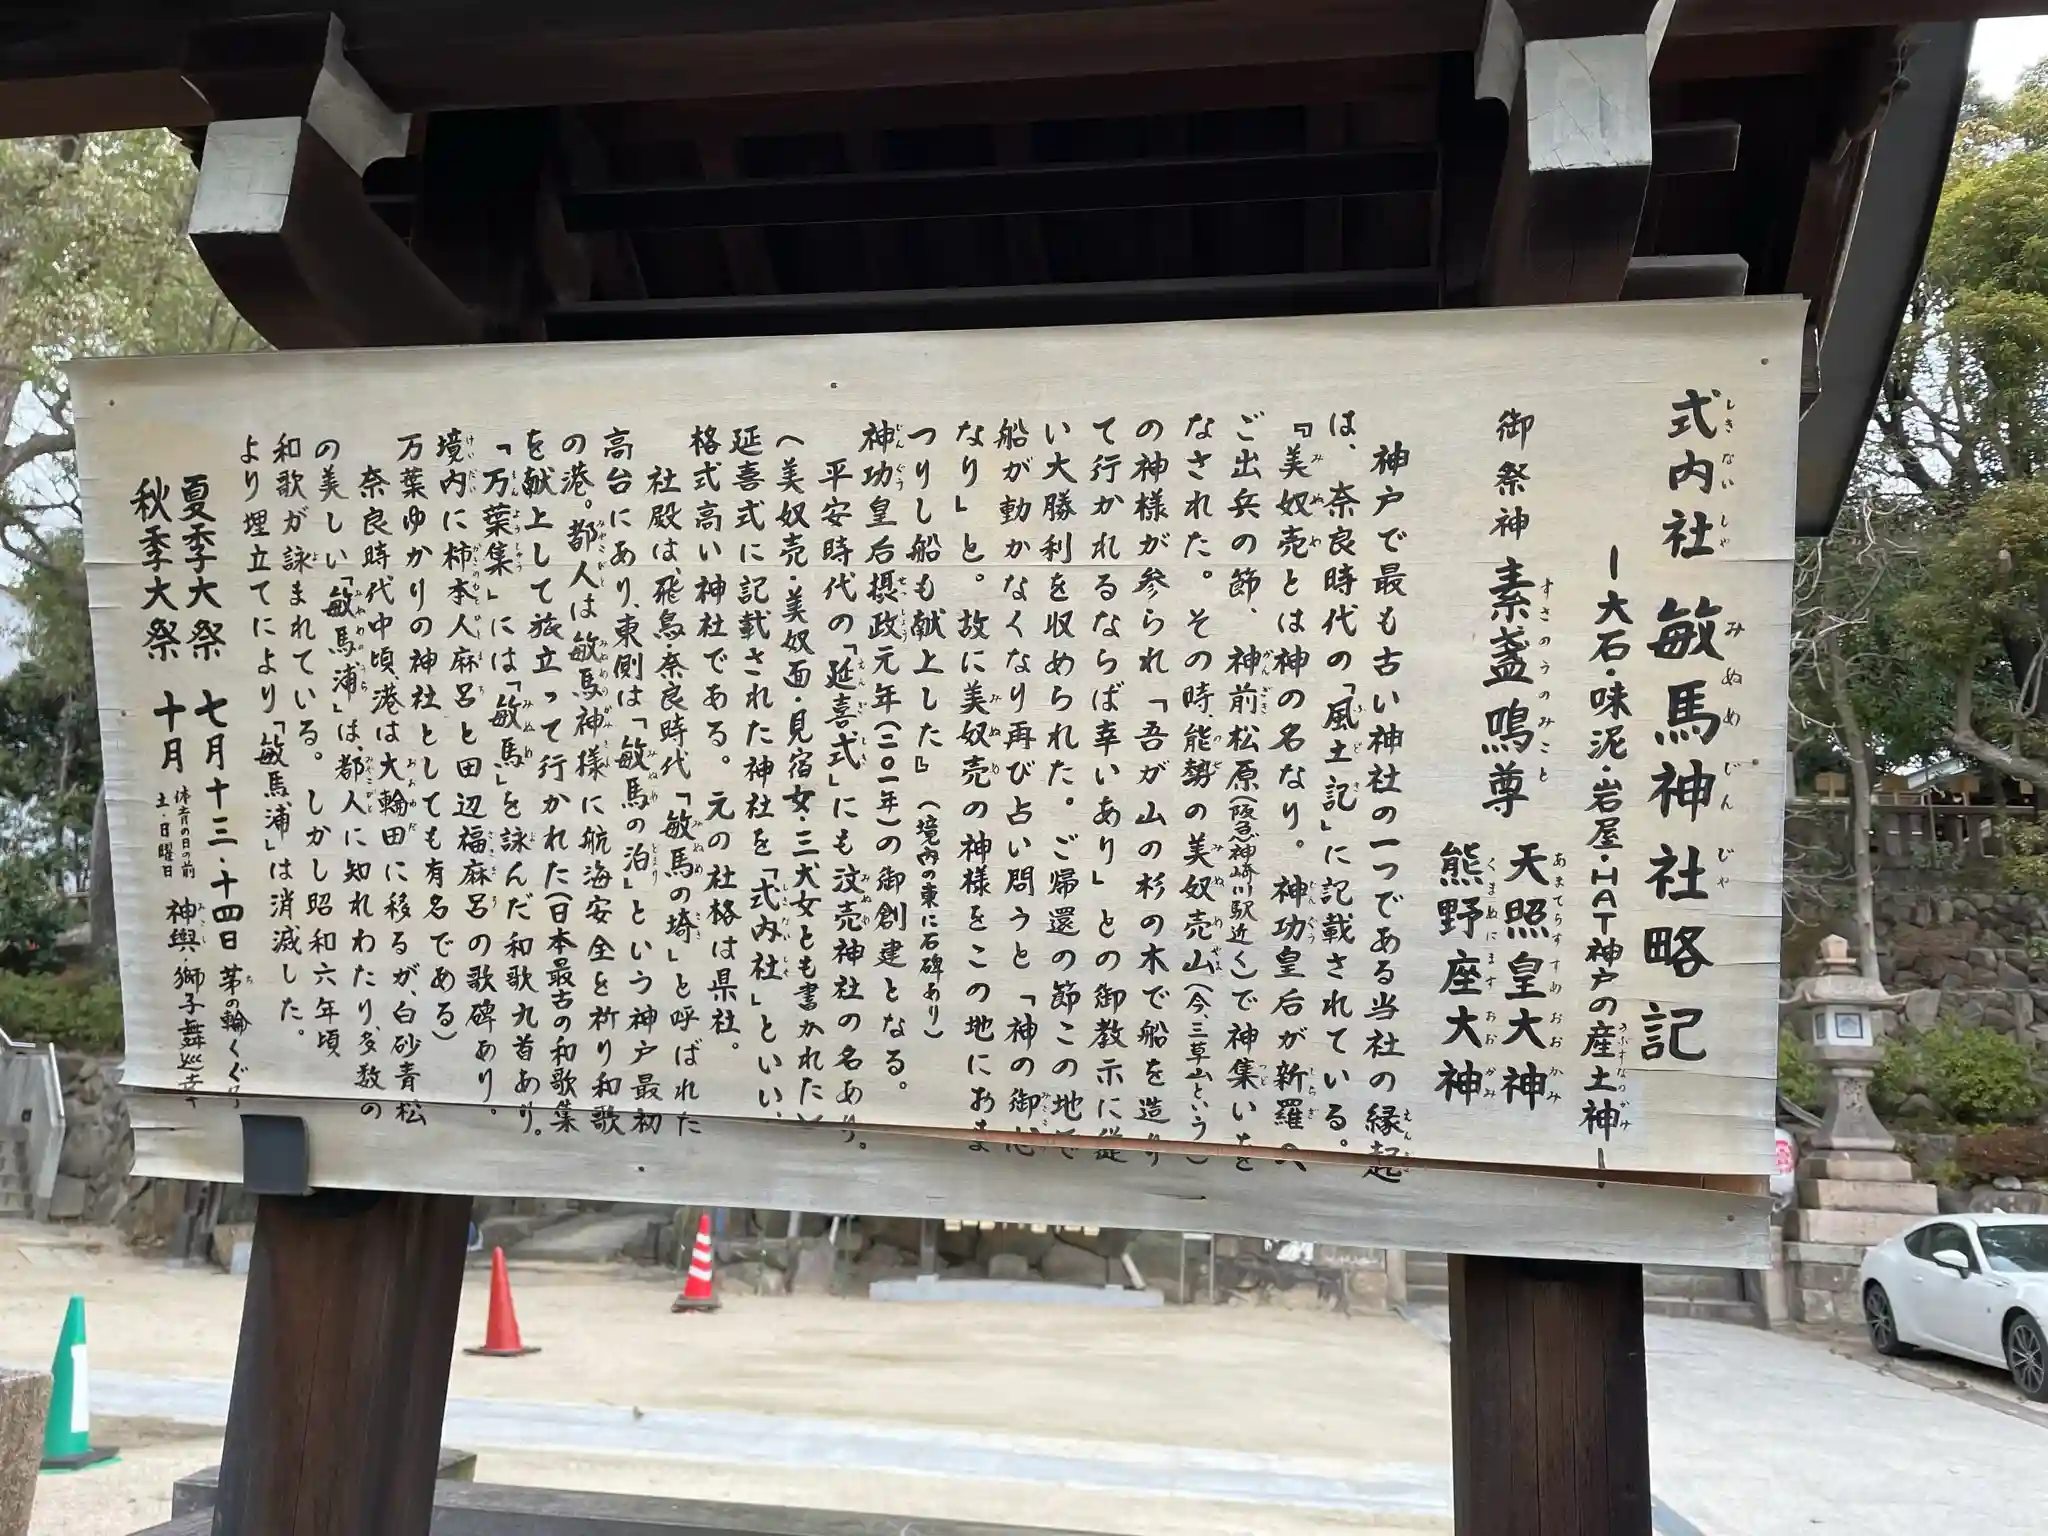 式内社 敏馬神社略記
ー大石・味泥・岩屋・HAT神戸の産土神ー
御祭神 素盞嗚尊 天照皇大神
熊野座大神
神戸で最も古い神社の一つである当社の縁起
は、奈良時代の「風土記」に記載されている。
『美奴売とは神の名なり。神功皇后が新羅へ
ご出兵の節、神前松原(阪急神崎川駅近く)で神集いを
なされた。その時、能勢の美奴売山(今、三草山という)
の神様が参られ「吾が山の杉の木で船を造り
て行かれるならば幸いあり」との御教示に従
い大勝利を収められた。ご帰還の節この地で
船が動かなくなり再び占い問うと「神の御心
なり」と。故に美奴売の神様をこの地におま
つりし船も献上した』(境内の東に石碑あり)
神功皇后摂政元年(二〇一年)の御創建となる。
平安時代の「延喜式」にも汶売神社の名あり。
(美奴売・美奴面・見宿女・三犬女とも書かれた)
延喜式に記載された神社を「式内社」といい、
格式高い神社である。元の社格は県社。
社殿は、飛鳥・奈良時代「敏馬の埼」と呼ばれた
高台にあり、東側は「敏馬の泊」という神戸最初
の港。都人は敏馬神様に航海安全を祈り和歌
を献上して旅立って行かれた(日本最古の和歌集
「万葉集」には「敏馬」を詠んだ和歌九首あり。
境内に柿本人麻呂と田辺福麻呂の歌碑あり。
万葉ゆかりの神社としても有名である)
奈良時代中頃、港は大輪田に移るが、白砂青松
の美しい「敏馬浦」は、都人に知れわたり、多数の
和歌が詠まれている。しかし昭和六年頃
より埋立てにより「敏馬浦」は消滅した。
夏季大祭 七月十三・十四日 茅の輪くぐり
秋季大祭 十月 体育の日の前 土・日曜日 神輿・獅子舞巡幸